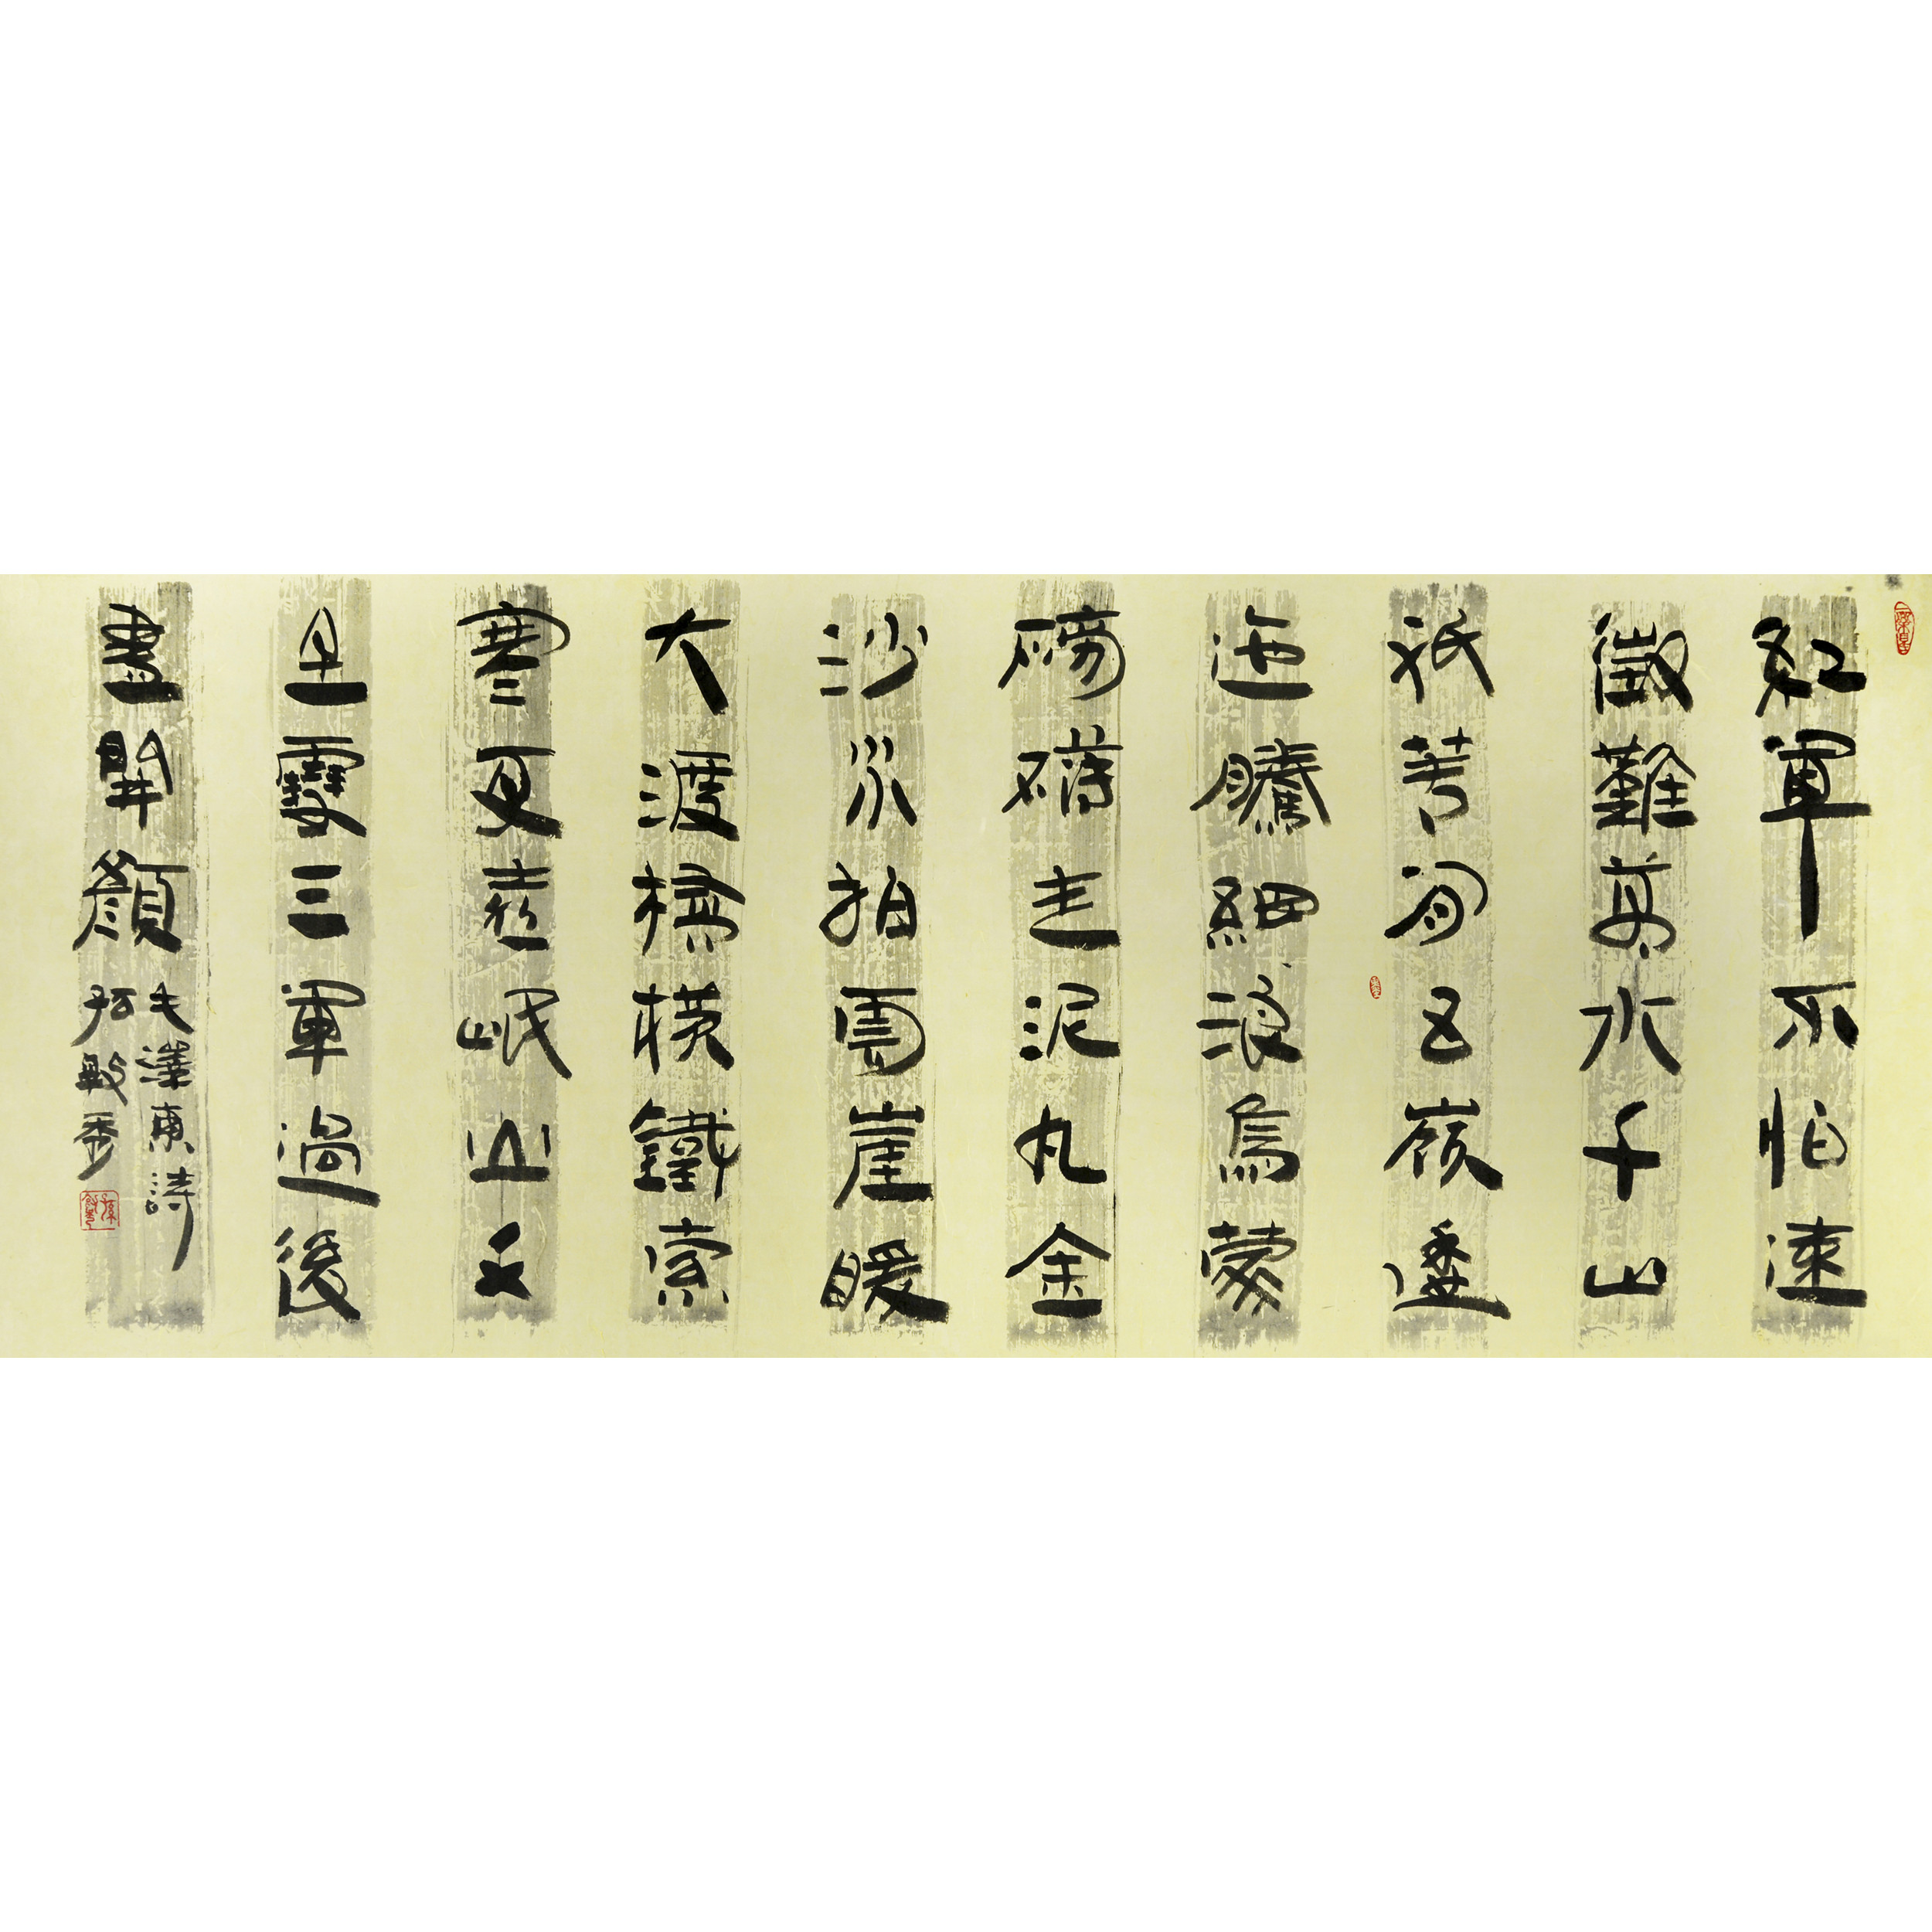 紅軍不怕遠
徵難萬水千山
祇等閒五嶺逶
迤騰細浪烏蒙
磅礴走泥丸金
沙水拍雲崖暖
大渡橋橫鐵索
寒更喜岷山千
里雪三軍過後
盡開顏
毛澤東詩